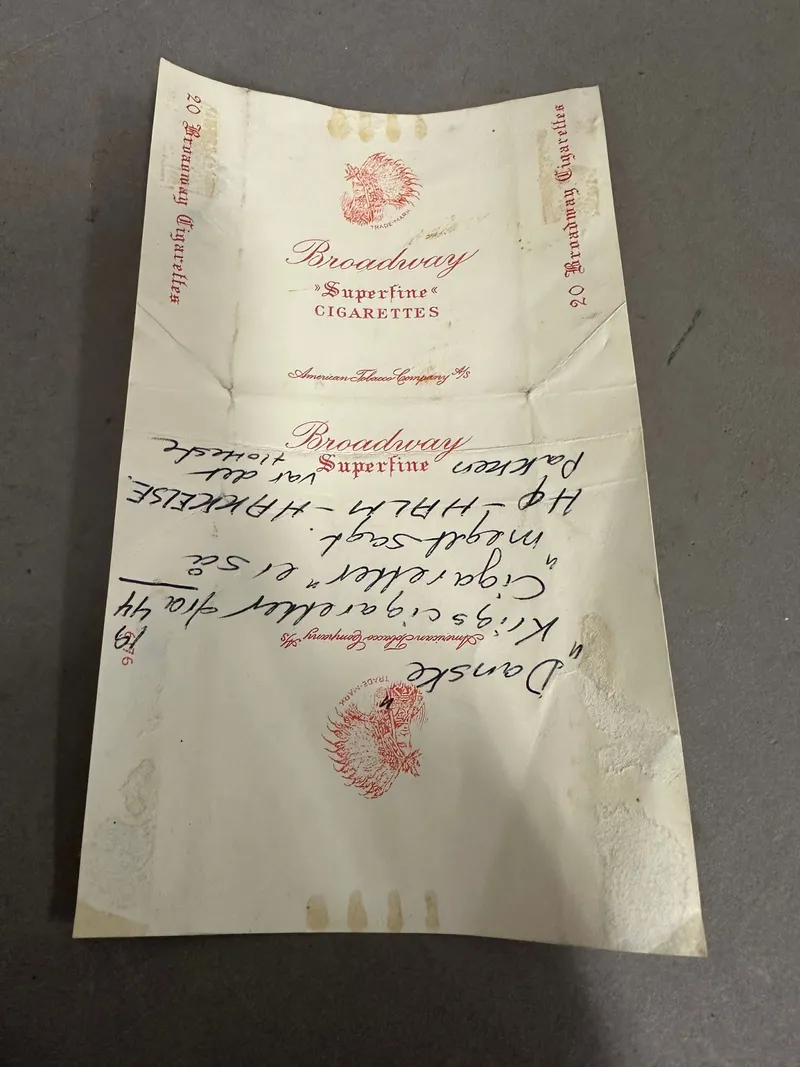 20 Broadway Cigarettes
20 Broadway Cigarettes
TRADE-MARK
Broadway
»Superfine«
CIGARETTES
American Tobacco Company A/S
Broadway
Superfine
TRADE-MARK
American Tobacco Company A/S
"Danske"
Krigscigaretter fra 1944
"Cigaretter" er så
meget sagt.
HØ - HALM - HAKKELSE.
Pakken var det